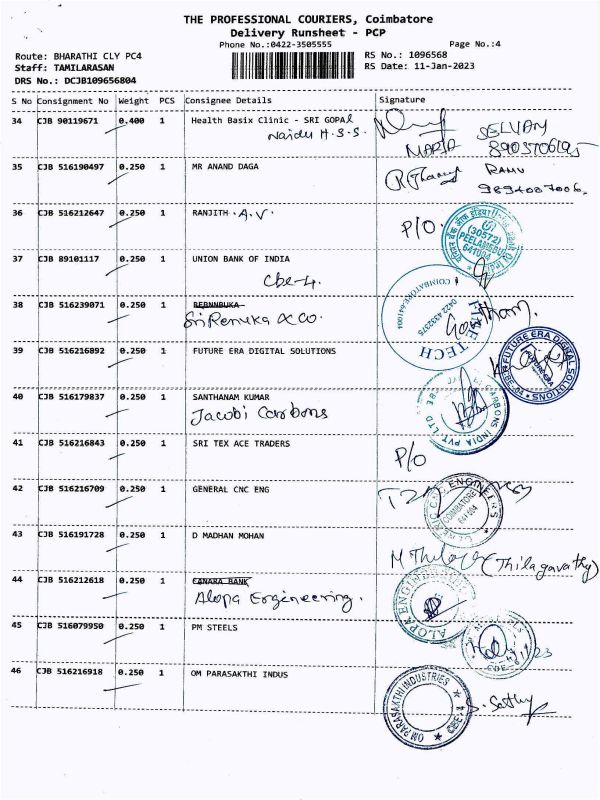 THE PROFESSIONAL COURIERS, Coimbatore
Delivery Runsheet - PCP
Phone No.:0422-3505555
Page No.:4
Route: BHARATHI CLY PC4
RS No.: 1096568
Staff: TAMILARASAN
RS Date: 11-Jan-2023
DRS No.: DCJB109656804
S No Consignment No Weight PCS Consignee Details Signature
34 CJB 90119671 0.400 1 Health Basix Clinic - SRI GOPAL
Naidu H.S.S.
SELVAM
MARIA
35 CJB 516190497 0.250 1 MR ANAND DAGA
RAMU
9894007006
36 CJB 516212647 0.250 1 RANJITH . A.V.
P/O.
(30572)
PEELAMEDU
641004
37 CJB 89101117 0.250 1 UNION BANK OF INDIA
Cbe-4.
COIMBATORE-641004
0422 4332375
38 CJB 516239071 0.250 1
Sri Renuka & Co.
39 CJB 516216892 0.250 1 FUTURE ERA DIGITAL SOLUTIONS
FUTURE ERA DIGITAL SOLUTIONS
40 CJB 516179837 0.250 1 SANTHANAM KUMAR
Jacobi Carbons
CARBONS INDIA PVT LTD
41 CJB 516216843 0.250 1 SRI TEX ACE TRADERS
P/O
42 CJB 516216709 0.250 1 GENERAL CNC ENG
COIMBATORE
641 004
43 CJB 516191728 0.250 1 D MADHAN MOHAN
(Thilagavathy)
44 CJB 516212618 0.250 1 CANARA BANK
Alopa Engineering.
ALOPA ENGINEERING
45 CJB 516079950 0.250 1 PM STEELS
46 CJB 516216918 0.250 1 OM PARASAKTHI INDUS
OM PARASAKTHI INDUSTRIES
CBE-4
S. Sathy